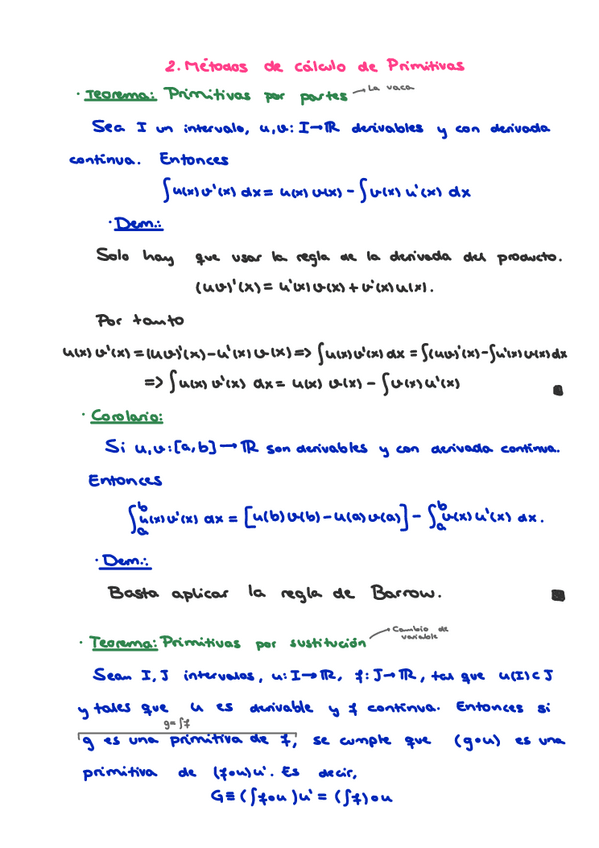 2. Métodos de cálculo de Primitivas
· Teorema: Primitivas por partes → La vaca
Sea I un intervalo, u,v: I→ℝ derivables y con derivada
continua. Entonces
∫u(x)v'(x) dx = u(x) v(x) - ∫v(x) u'(x) dx
· Dem.:
Solo hay que usar la regla de la derivada del producto.
(uv)'(x) = u'(x)v(x) + v'(x)u(x).
Por tanto
u(x)v'(x) = (uv)'(x) - u'(x)v(x) => ∫u(x)v'(x) dx = ∫(uv)'(x) - ∫u'(x)v(x)dx
=> ∫u(x) v'(x) dx = u(x) v(x) - ∫v(x)u'(x) ■
· Corolario:
Si u,v:[a,b] → ℝ son derivables y con derivada continua.
Entonces
∫_a^b u(x)v'(x) dx = [u(b)v(b) - u(a)v(a)] - ∫_a^b v(x)u'(x) dx.
· Dem.:
Basta aplicar la regla de Barrow. ■
· Teorema: Primitivas por sustitución → Cambio de variable
Sean I, J intervalos, u: I→ℝ, f: J→ℝ, tal que u(I)⊂J
y tales que u es derivable y f continua. Entonces si
g=∫f
g es una primitiva de f, se cumple que (g∘u) es una
primitiva de (f∘u)u'. Es decir,
G≡(∫f∘u)u' = (∫f)∘u